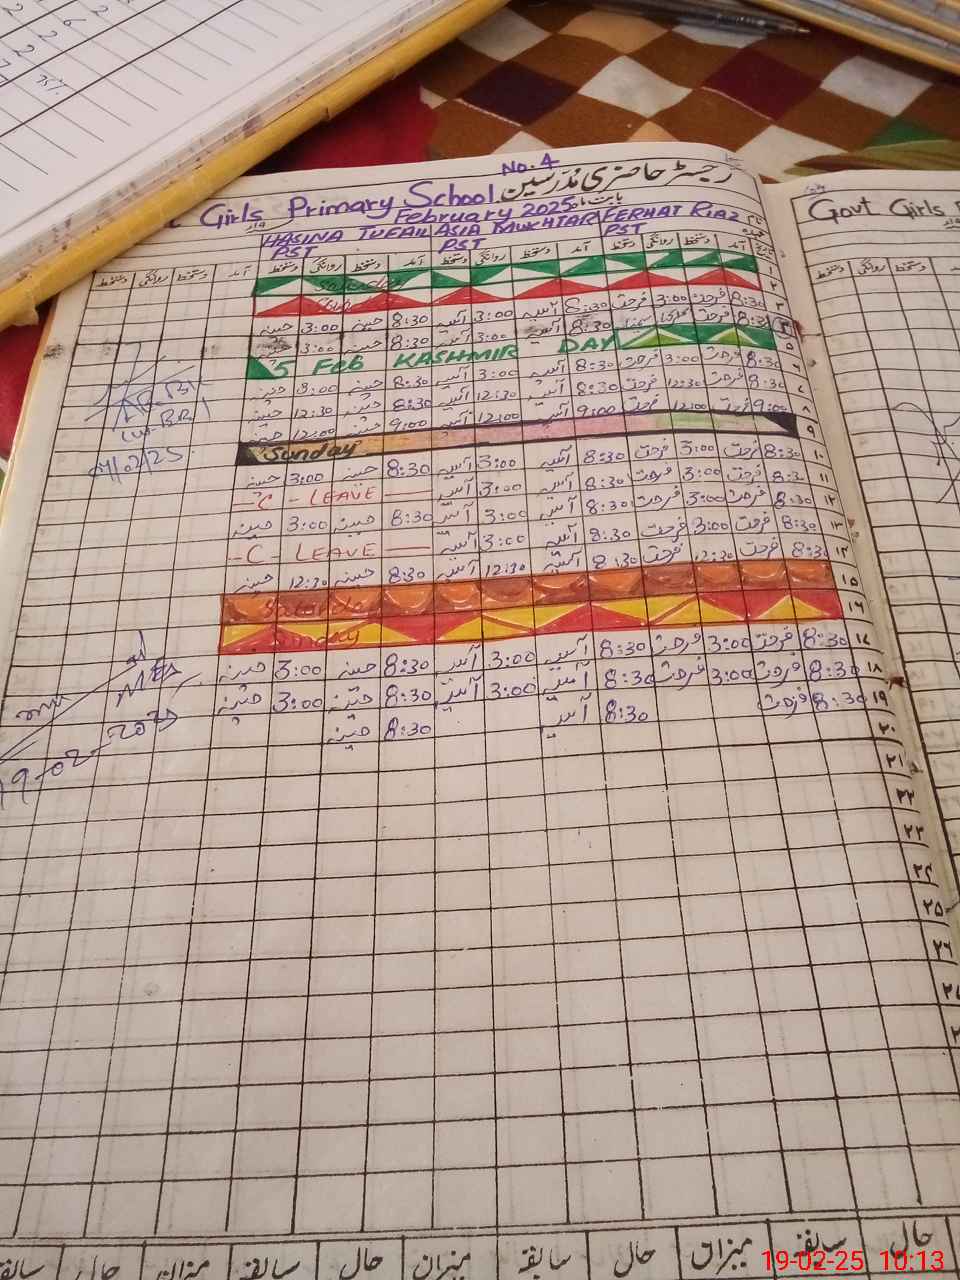 No. 4
رجسٹر حاضری مدرسین
Girls Primary School
بابت ماہ February 2025
HASINA TUFAIL ASIA MUKHTAR FERHAT RIAZ
PST PST PST
آمد دستخط روانگی دستخط آمد دستخط روانگی دستخط آمد دستخط روانگی دستخط آمد دستخط روانگی دستخط
۱ Saturday
۲ Sunday
۳ 8:30 فرحت 3:00 فرحت 8:30 آسیہ 3:00 آسیہ 8:30 حسینہ 3:00 حسینہ
8:30 آسیہ 3:00 آسیہ 8:30 حسینہ 3:00 حسینہ
۵ 5 Feb KASHMIR DAY
۶ 8:30 فرحت 3:00 فرحت 8:30 آسیہ 3:00 آسیہ 8:30 حسینہ 3:00 حسینہ
۷ 8:30 فرحت 12:30 فرحت 8:30 آسیہ 12:30 آسیہ 8:30 حسینہ 12:30 حسینہ
۸ 9:00 فرحت 12:00 فرحت 9:00 آسیہ 12:00 آسیہ 9:00 حسینہ 12:00 حسینہ
۹ Sunday
۱۰ 8:30 فرحت 3:00 فرحت 8:30 آسیہ 3:00 آسیہ 8:30 حسینہ 3:00 حسینہ
۱۱ 8:30 فرحت 3:00 فرحت 8:30 آسیہ 3:00 آسیہ - C - LEAVE -
۱۲ 8:30 فرحت 3:00 فرحت 8:30 آسیہ 3:00 آسیہ 8:30 حسینہ 3:00 حسینہ
۱۳ 8:30 فرحت 3:00 فرحت 8:30 آسیہ 3:00 آسیہ - C - LEAVE -
۱۴ 8:30 فرحت 12:30 فرحت 8:30 آسیہ 12:30 آسیہ 8:30 حسینہ 12:30 حسینہ
۱۵ Saturday
۱۶ Sunday
۱۷ 8:30 فرحت 3:00 فرحت 8:30 آسیہ 3:00 آسیہ 8:30 حسینہ 3:00 حسینہ
۱۸ 8:30 فرحت 3:00 فرحت 8:30 آسیہ 3:00 آسیہ 8:30 حسینہ 3:00 حسینہ
۱۹ 8:30 فرحت 8:30 آسیہ 8:30 حسینہ
۲۰
۲۱
۲۲
۲۳
۲۴
۲۵
۲۶
۲۷
07/02/25
19-02-2025
حال سابقہ میزان حال سابقہ میزان حال سابقہ میزان حال سابقہ
Govt Girls
دستخط روانگی دستخط
19-02-25 10:13